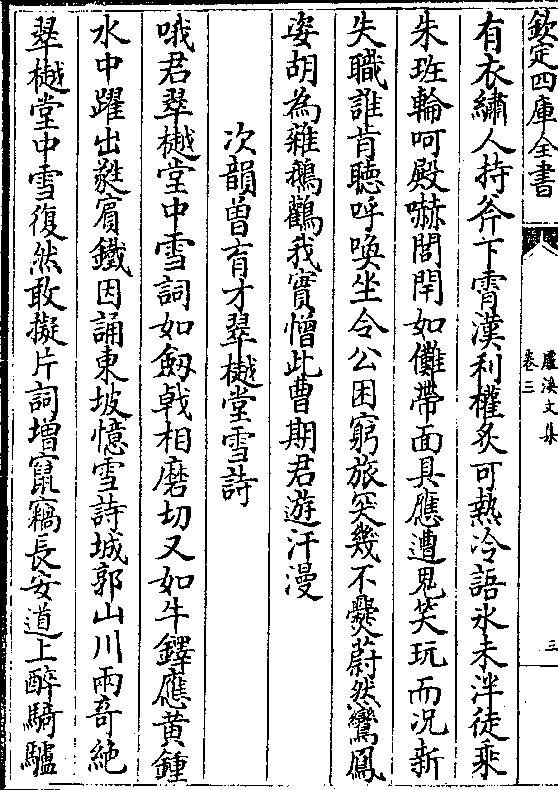 欽定四庫全書
盧溪文集
卷三
三
有衣繡人持斧下霄漢利權炙可熱冷語氷未泮徒乘
朱班輪呵殿嚇閭閈如儺帶面具應遭鬼笑玩而况新
失職誰肯聽呼喚坐令公困窮旅突幾不爨蔚然鸞鳳
姿胡為雜鵝鸛我實憎此曹期君遊汗漫
次韻曽育才翠樾堂雪詩
哦君翠樾堂中雪詞如劔戟相磨切又如牛鐸應黃鍾
水中躍出蕤賔鐵因誦東坡憶雪詩城郭山川兩奇絶
翠樾堂中雪復然敢擬片詞增竄竊長安道上醉騎驢